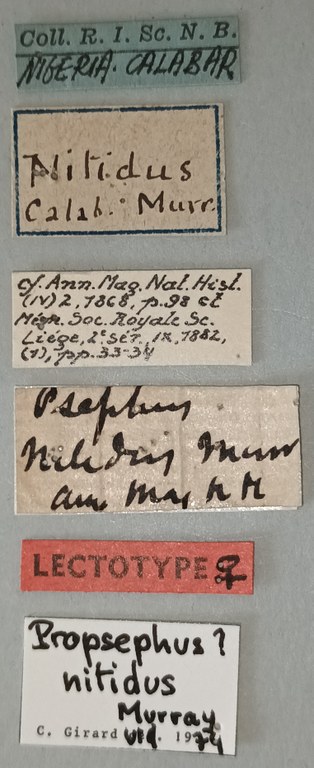 Coll. R. I. Sc. N. B.
NIGERIA. CALABAR
Nitidus
Calab. Murr.
cf. Ann. Mag. Nat. Hist.
(IV) 2, 1868, p. 98 et
Mém. Soc. Royale Sc.
Liège, 2e sér., IX, 1882,
(1), pp. 33-34
Psephus
Nitidus Murr
ann Mag N H
LECTOTYPE ♀
Propsephus?
nitidus
Murray
C. Girard vid. 1974